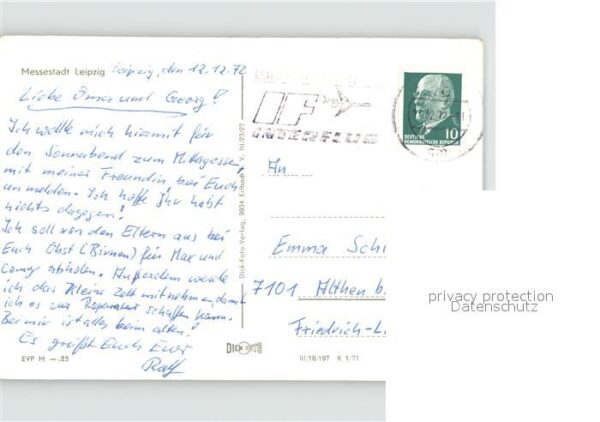 Messestadt Leipzig
Leipzig, den 12.12.72
Liebe Oma und Georg!
Ich wollte mich hiermit für
den Sonnabend zum Mittagessen,
mit meiner Freundin, bei Euch
anmelden. Ich hoffe Ihr habt
nichts dagegen!
Ich soll von den Eltern aus bei
Euch Obst (Birnen) für Max und
abholen. Außerdem werde
ich das kleine Zelt mitnehmen, damit
ich es zur Reparatur schaffen kann.
Bei mir ist alles beim alten!
Es grüßt Euch Euer
Ralf
EVP M —.25
Dick-Foto-Verlag, 9934 Erlbach i. V. III/23/27
DICK
III/18/197 K 1/71
IF
INTERFLUG
10
DEUTSCHE
DEMOKRATISCHE REPUBLIK
An
Emma Sch
7101 Althen b.
Friedrich-L
privacy protection
Datenschutz